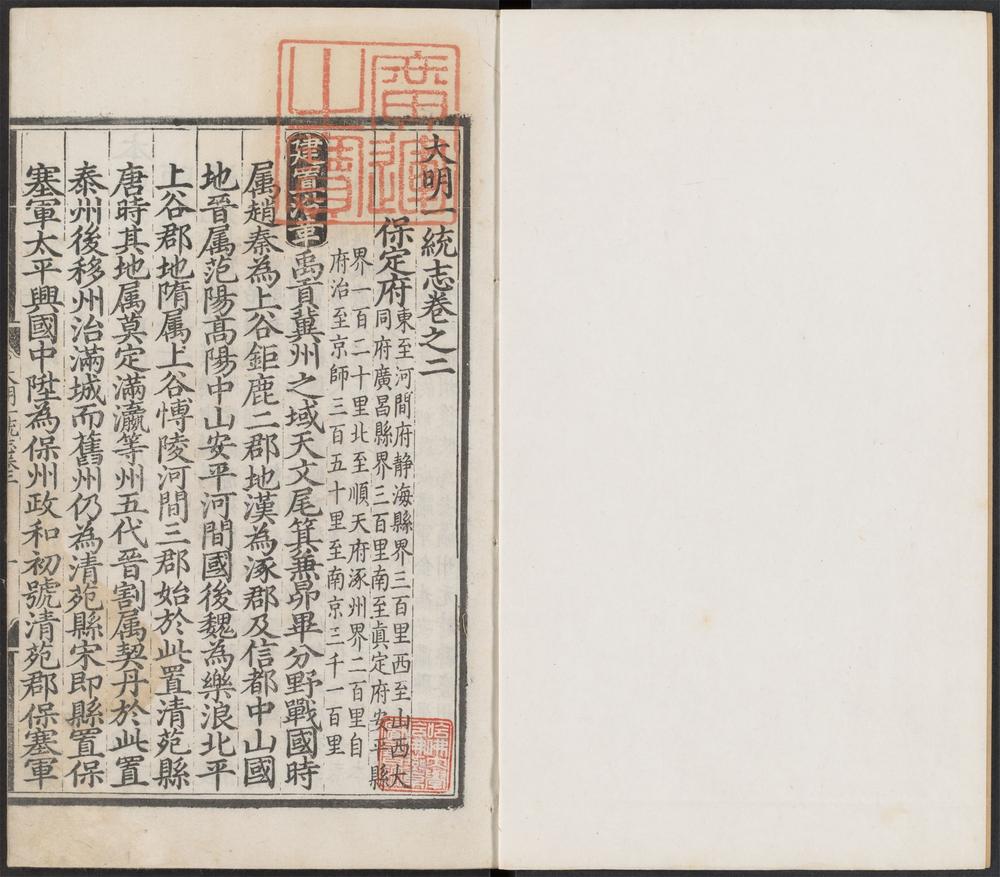 大明一統志卷之二
保定府東至河間府静海縣界三百里西至山西大
同府廣昌縣界三百里南至眞定府安平縣
界一百二十里北至順天府涿州界二百里自
府治至京師三百五十里至南京三千一百里
建置沿革禹貢冀州之域天文尾箕兼昴畢分野戰國時
属趙秦為上谷鉅鹿二郡地漢為涿郡及信都中山國
地晉属范陽髙陽中山安平河間國後魏為樂浪北平
上谷郡地隋属上谷愽陵河間三郡始於此置清苑縣
唐時其地属莫定滿瀛等州五代晉割属契丹於此置
泰州後移州治滿城而舊州仍為清苑縣宋即縣置保
塞軍太平興國中陞為保州政和初號清苑郡保塞軍